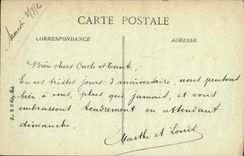 CARTE POSTALE
CORRESPONDANCE
ADRESSE
Samedi
Bien chers Oncle et Tante.
En ces tristes jours d'anniversaire nous pensons
bien à vous plus que jamais, et vous
embrassons tendrement en attendant
dimanche.
Marthe et Louis